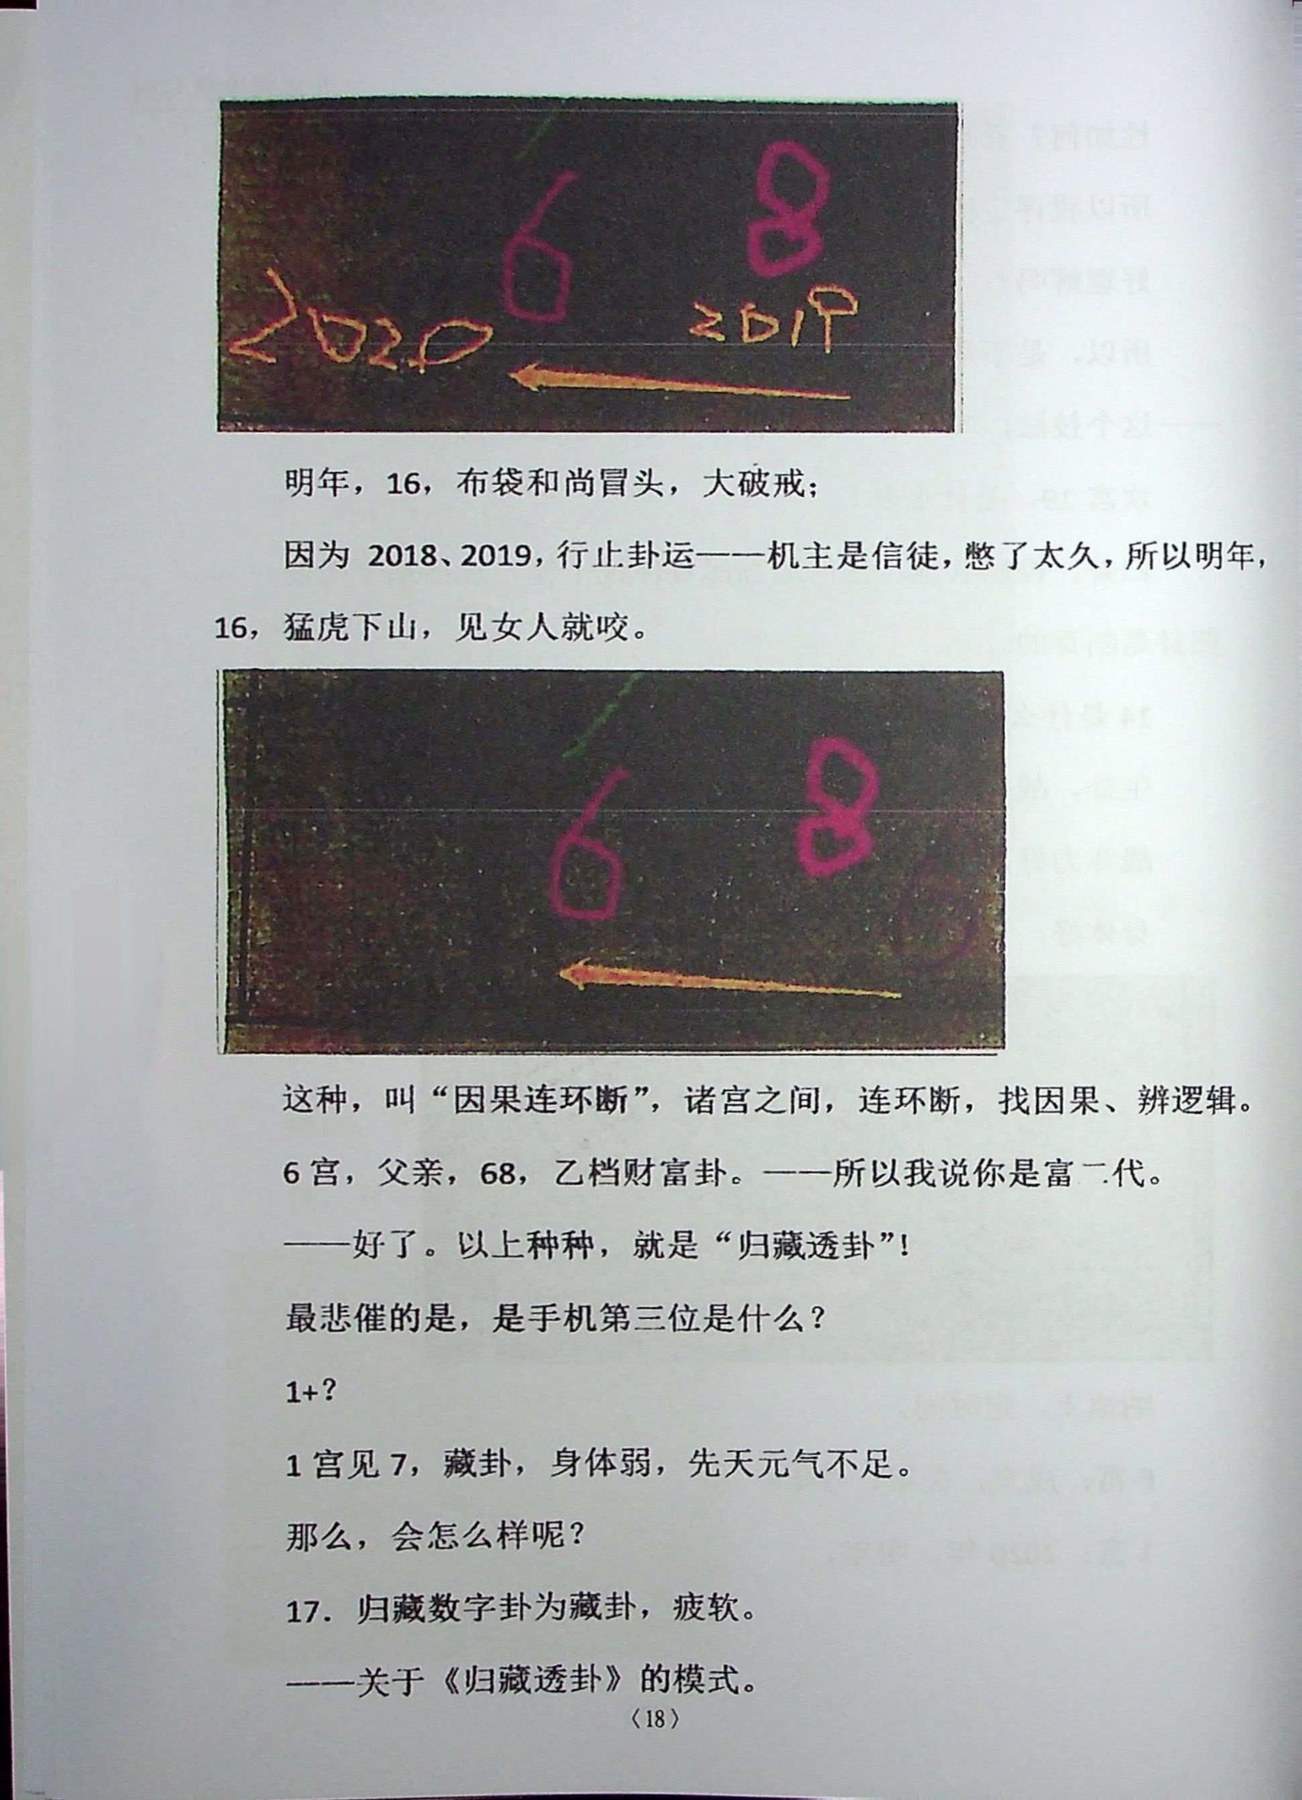 6 8
2020 2019
明年，16，布袋和尚冒头，大破戒；
因为 2018、2019，行止卦运——机主是信徒，憋了太久，所以明年，
16，猛虎下山，见女人就咬。
6 8
这种，叫“因果连环断”，诸宫之间，连环断，找因果、辨逻辑。
6 宫，父亲，68，乙档财富卦。——所以我说你是富二代。
——好了。以上种种，就是“归藏透卦”！
最悲催的是，是手机第三位是什么？
1+？
1 宫见 7，藏卦，身体弱，先天元气不足。
那么，会怎么样呢？
17．归藏数字卦为藏卦，疲软。
——关于《归藏透卦》的模式。
〈18〉